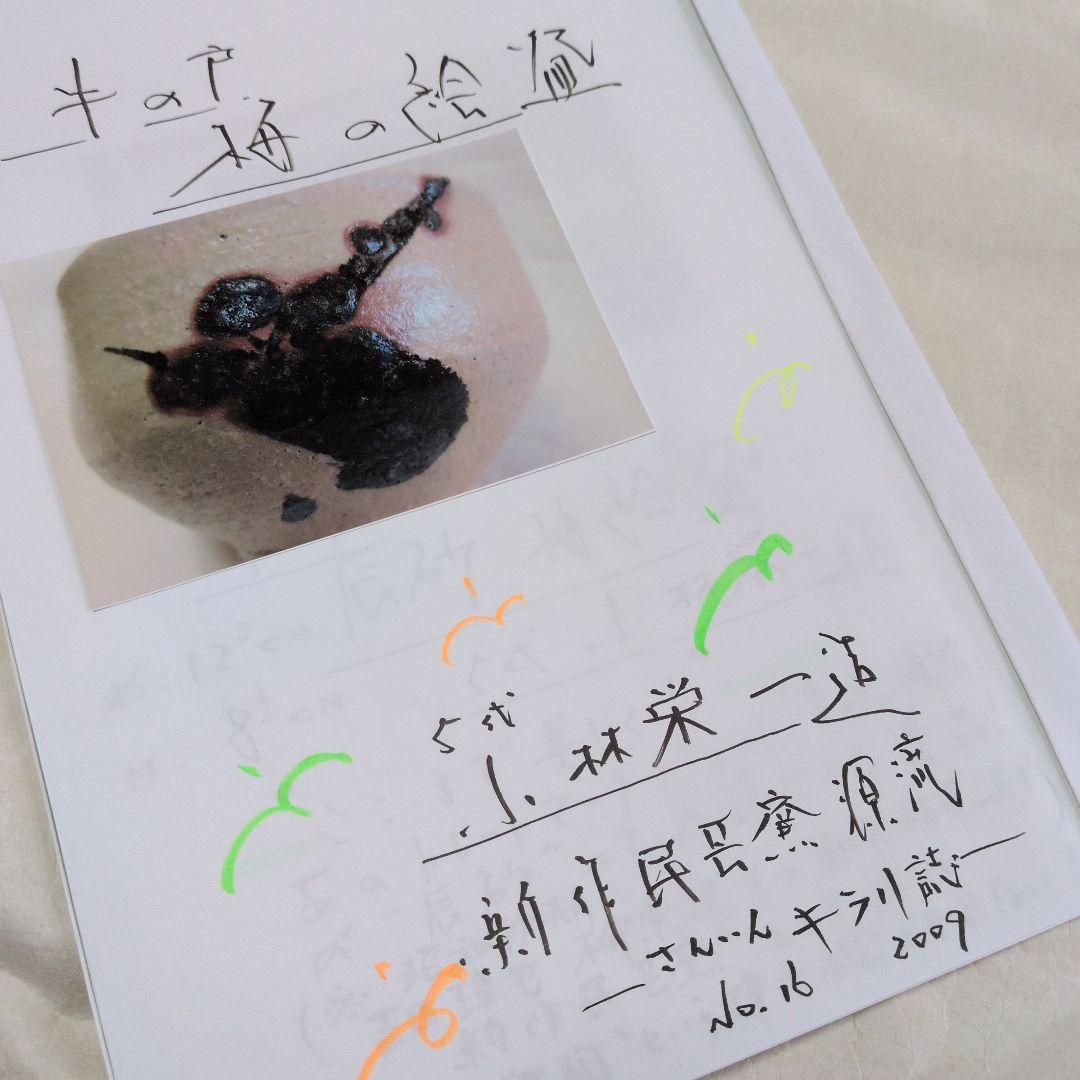 牛の戸
梅の絵瓷
5代
小林栄一造
新作民芸窯源流
さんいんキラリ誌
2009
No.16